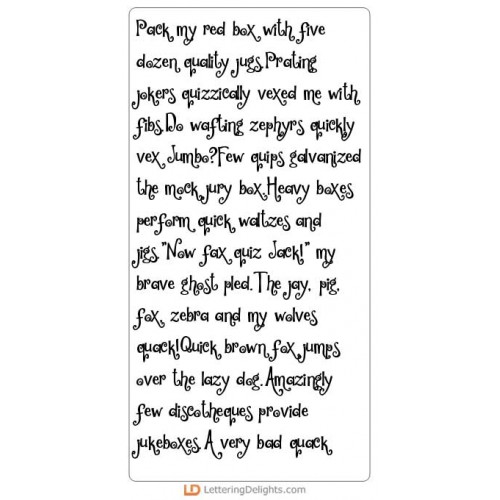 Pack my red box with five
dozen quality jugs.Prating
jokers quizzically vexed me with
fibs.Do wafting zephyrs quickly
vex Jumbo?Few quips galvanized
the mock jury box.Heavy boxes
perform quick waltzes and
jigs."Now fax quiz Jack!" my
brave ghost pled.The jay, pig,
fox, zebra and my wolves
quack!Quick brown fox jumps
over the lazy dog.Amazingly
few discotheques provide
jukeboxes.A very bad quack
LD LetteringDelights.com